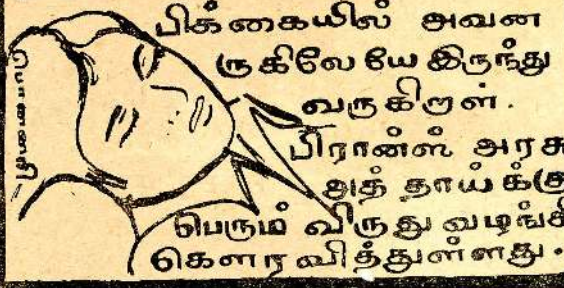 பிக்கையில் அவன
ருகிலே யே இருந்து
வருகிறள்.
பிரான்ஸ் அரசு
அத் தாய் க்கு
பெரும் விருது வழங்கி
கௌர வித்துள்ளது.